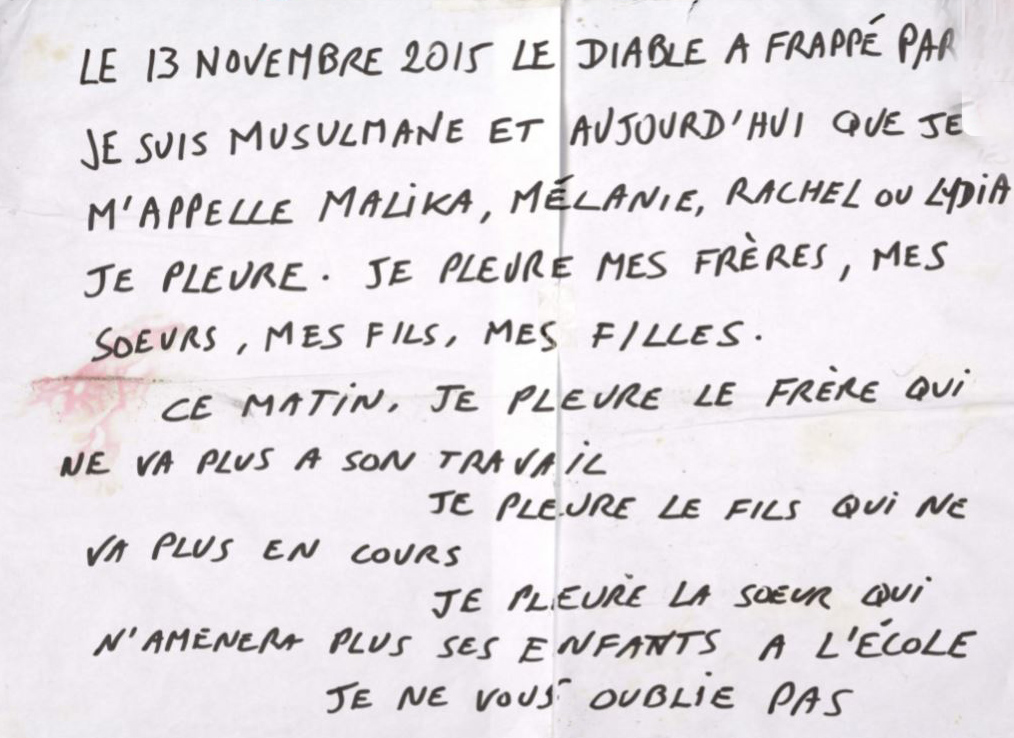 LE 13 NOVEMBRE 2015 LE DIABLE A FRAPPÉ PAR
JE SUIS MUSULMANE ET AUJOURD'HUI QUE JE
M'APPELLE MALIKA, MÉLANIE, RACHEL OU LYDIA
JE PLEURE. JE PLEURE MES FRÈRES, MES
SOEURS, MES FILS, MES FILLES.
CE MATIN, JE PLEURE LE FRÈRE QUI
NE VA PLUS A SON TRAVAIL
JE PLEURE LE FILS QUI NE
VA PLUS EN COURS
JE PLEURE LA SOEUR QUI
N'AMÈNERA PLUS SES ENFANTS A L'ÉCOLE
JE NE VOUS OUBLIE PAS